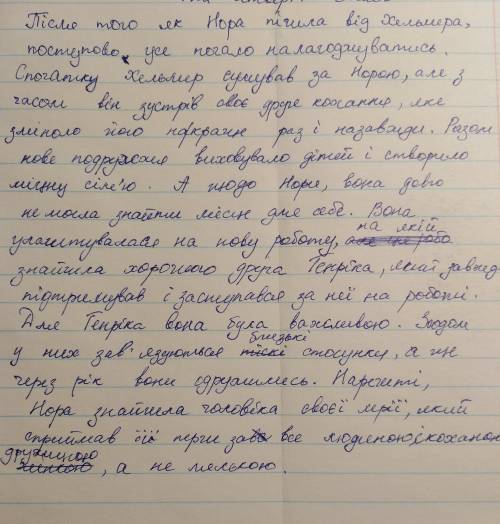 Після того як Нора пішла від Хельмера,
поступово усе почало налагоджуватись.
Спочатку Хельмер сумував за Норою, але з
часом він зустрів своє друге кохання, яке
змінило його на краще раз і назавжди. Разом
нове подружжя виховувало дітей і створило
міцну сім'ю. А щодо Нори, вона довго
не могла знайти місце для себе. Вона
улаштувалася на нову роботу, на якій
знайшла хорошого друга Генріка, який завжди
підтримував і заступався за неї на роботі.
Для Генріка вона була важливою. Згодом
у них зав'язуються близькі стосунки, а ще
через рік вони одружились. Нарешті,
Нора знайшла чоловіка своєї мрії, який
сприймав її перш за все людиною і коханою
дружиною, а не лялькою.